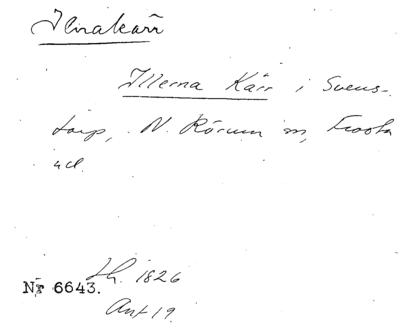 Ilnakärr
Illerna Kärr i Svens-
torp, N. Rörum sn, Frosta
hd.
Lh. 1826
Nr 6643.
Ant 19